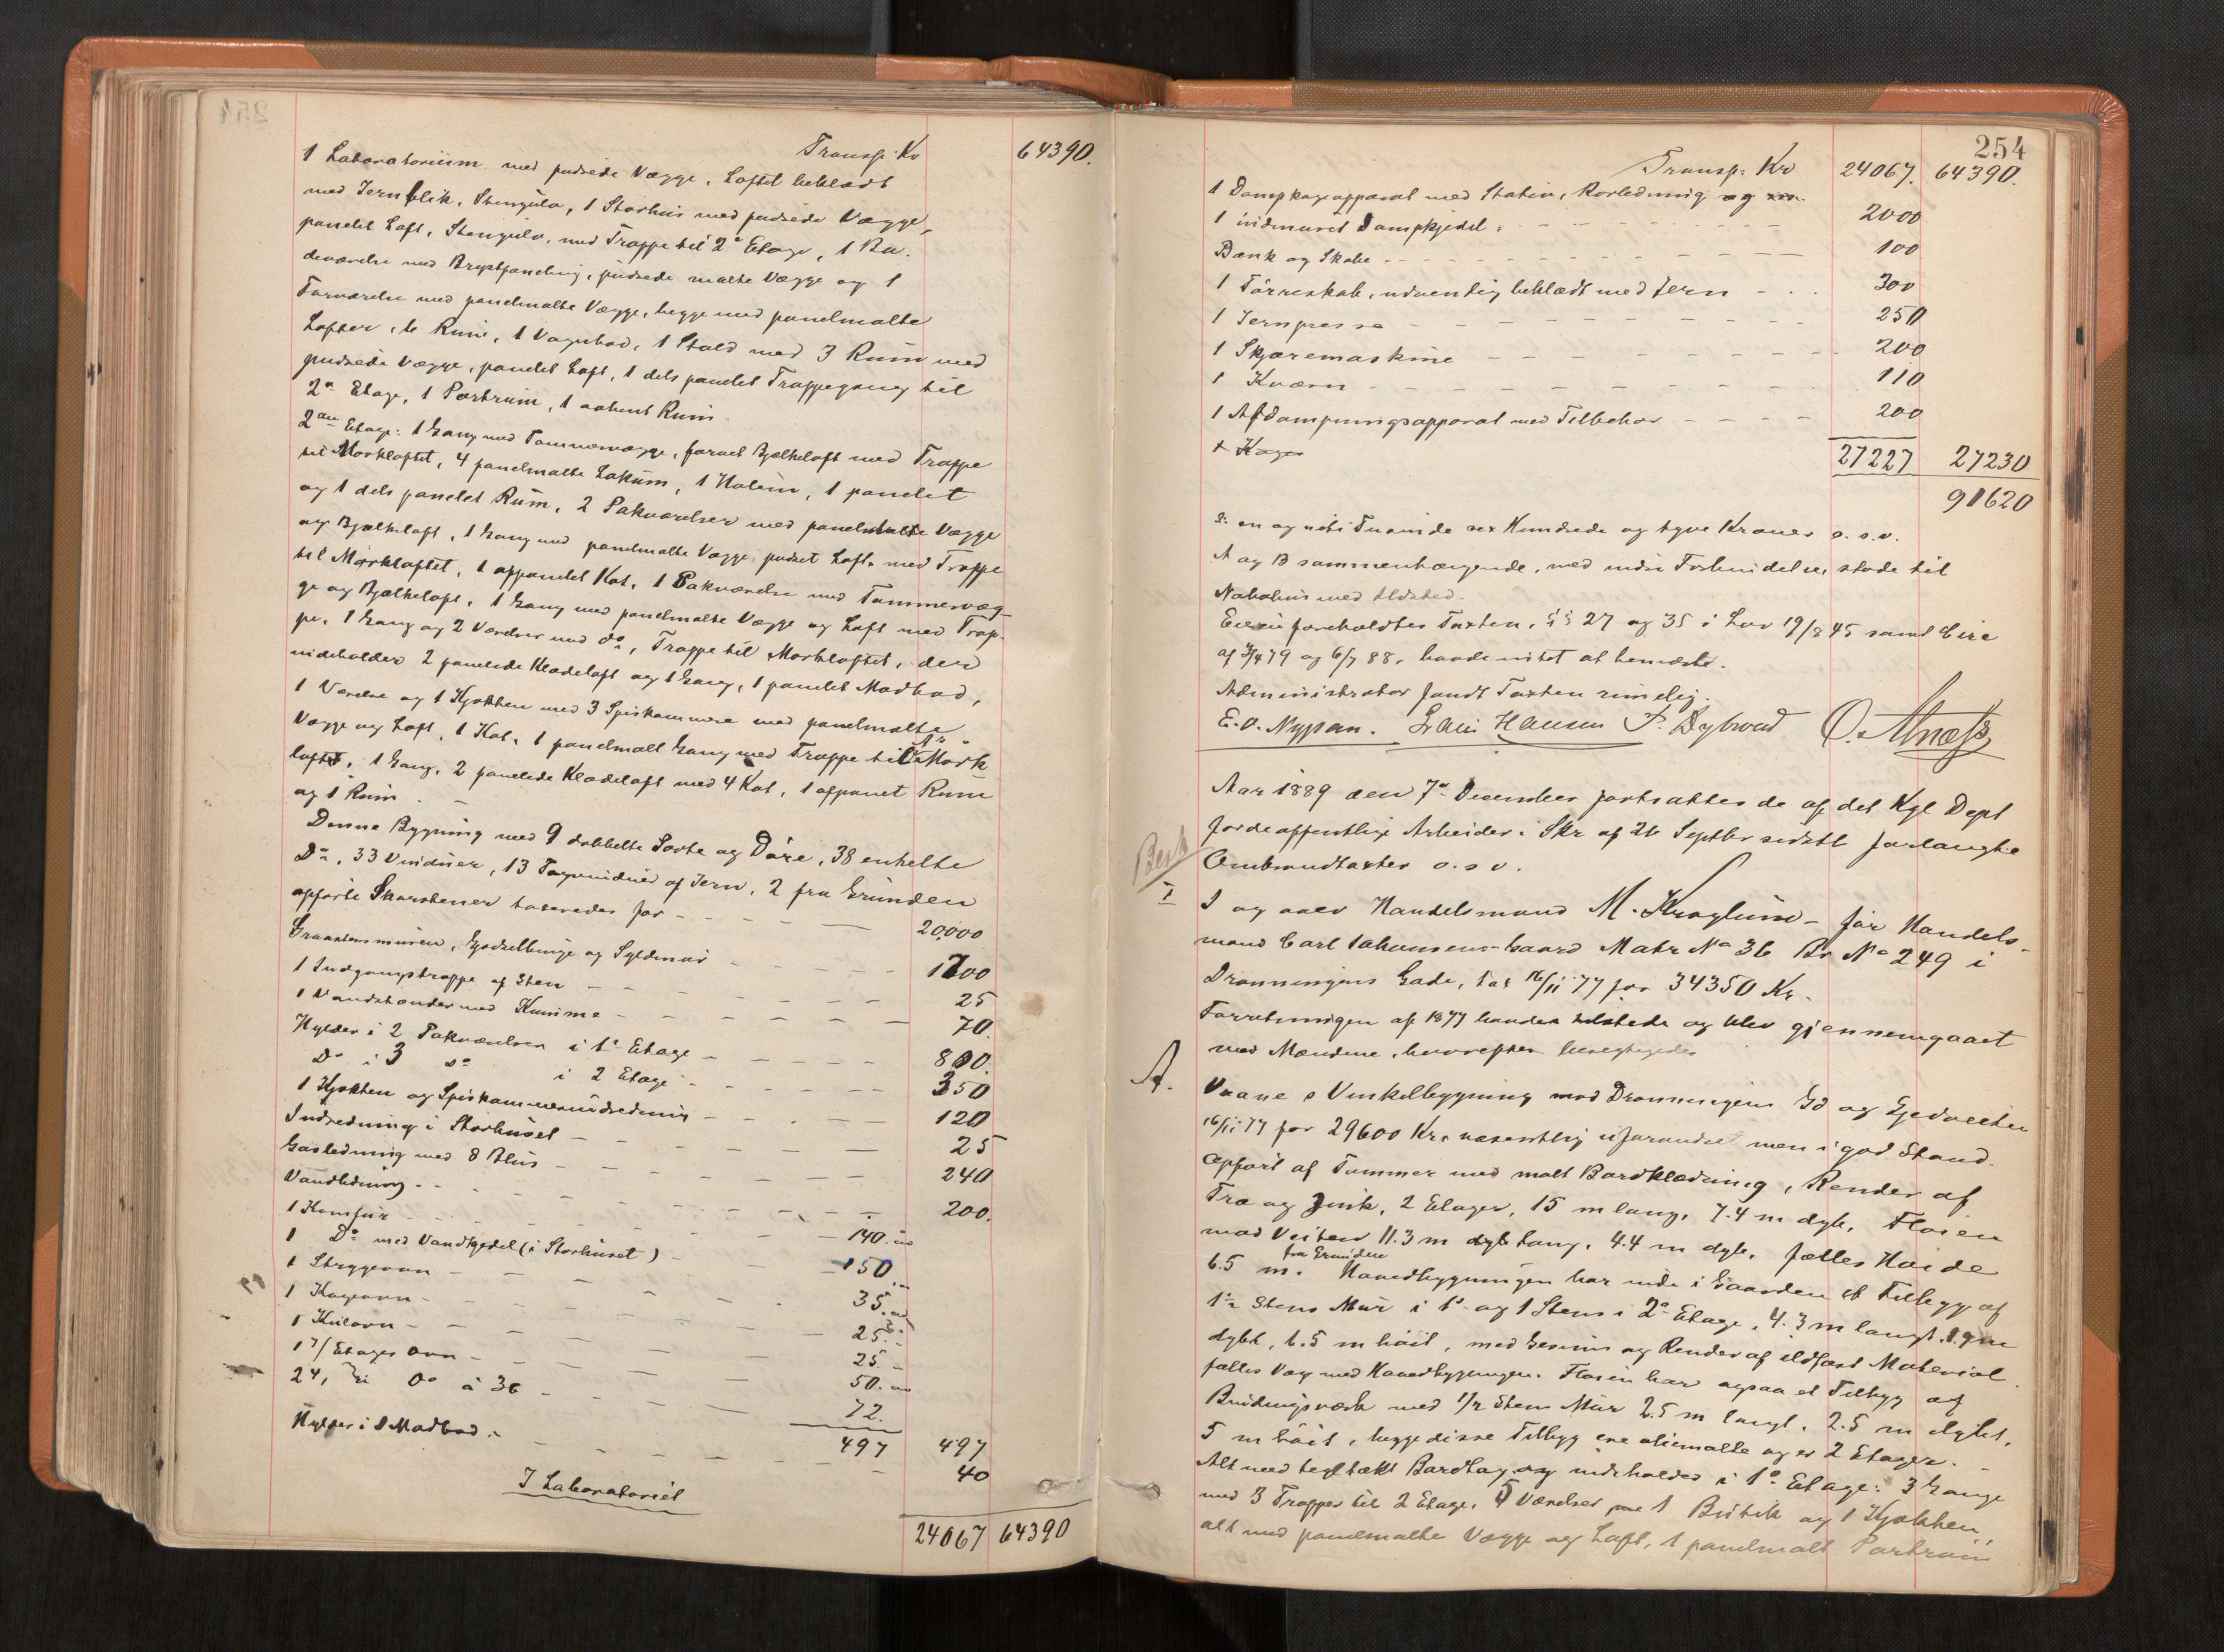 Transp. Kr 64390.
1 Laboratorium med pudsede Vægge, Loftet beklædt
med Jernblik, Stengulv, 1 Storhus med pudsede Vægge,
panelet Loft, Stengulv, med Trappe til 2a Etage, 1 Ba-
deværelse med Brystpaneling, pudsede malte Vægge og 1
Forværelse med panelmalte Vægge, begge med panelmalte
Lofter, 6 Rum, 1 Vognbod, 1 Stald med 3 Rum med
pudsede Vægge, panelet Loft, 1 dels panelet Trappegang til
2a Etage, 1 Portrum, 1 aabent Rum.
2den Etage: 1 Gang med Tømmervægge, Bjelkeloft med Trappe
til Mørkloftet, 4 panelmalte Lokum, 1 1 panelet
og 1 dels panelet Rum, 2 Pakværelser med panelmalte Vægge
og Bjelkeloft, 1 Gang med panelmalte Vægge pudset Loft, med Trappe
til Mørkloftet, 1 afpanelet Kot, 1 Pakværelse med Tømmervæg-
ge og Bjelkeloft, 1 Gang med panelmalte Vægge og Loft med Trap-
pe, 1 Gang og 2 Værelser med do, Trappe til Mørkloftet, der
indeholder 2 panelede Klædeloft og 1 Gang, 1 panelet Madbod,
1 Værelse og 1 Kjøkken med 3 Spiskammere med panelmalte
Vægge og Loft, 1 Kot, 1 panelmalt Gang med Trappe til Mørk
loftet, 1 Gang, 2 panelede Klædeloft med 4 Kot, 1 afpanet Rum
og 1 Rum.
Denne Bygning med 9 dobbelte Porte og Døre, 38 enkelte
Do, 33 Vinduer, 13 Tagvinduer af Jern, 2 fra Grunden
opførte Skorstener taxeredes for 20,000
Graastensmuren, og Syldmur 1700
1 Indgangstrappe af Sten 25
1 Vandstender med Kumme 70.
Hylder i 2 Pakværelser i 1e Etage 800.
Do i 3 do i 2 Etage 350
1 Kjøkken og Spiskammerindredning 120
Indredning i Storhuset 25
Gasledning med 8 Blus 240
Vandledning 200.
1 Komfur 140.
1 Do med Vandkjedel (i Storhuset) 150
1 Strygeovn 35.
1 Kogeovn 25.
1 Kulovn 25.
1 Etages Ovn 50.
2 Do à 36 72.
497 497
Hylder i 1 Madbod 40
I Laboratoriet
24067 64390
254
Transp. Kr 24067. 64390.
1 Dampkogeapparat med Stativ, Rørledning og
1 indmuret Dampkjedel 2000
Bænk og Skabe 100
1 Tørreskab, udvendig beklædt med Jern 300
1 Jernpresse 250
1 Skjæremaskine 200
1 Kværn 110
1 Afdampningsapparat med Tilbehør 200
27227 27230
91620
en og niti Tusinde sex Hundrede og tyve Kroner o. s. v.
A og B sammenhængende, med indre Forbindelse, støde til
Nabohus med Ildsted.
Eieren foreholdtes Taxten, §§ 27 og 35 i Lov 19/8 45 samt Circ
af 3/4 79 og 6/7 88, havde intet at bemærke.
Administrator fandt Taxten rimelig.
E. O. Nypan. Hansen P. Dybwad O. Alnæss
Aar 1889 den 7de December fortsattes de af det Kgl Dept
for de offentlige Arbeider i Skr af 26 Septbr sidstl forlangte
Besk
Ombrandtaxter o. s. v.
I I og over Handelsmand M. Kroglund – før Handels-
mand Carl Johansens Gaard Matr No 36 Br No 249 i
Dronningens Gade, tax 16/11 77 for 34350 Kr.
Forretningen af 1877 havdes tilstede og blev gjennemgaaet
med Mændene, hvorefter besigtigedes
A. Vaane s Vinkelbygning mod Dronningens Gd og Gjedveiten
16/11 77 for 29600 Kr. væsentlig uforandret men i god Stand.
Opført af Tømmer med malt Bordklædning, Render af
Træ og Zink, 2 Etager, 15 m lang, 7.4 m dyb, Fløien
mod Veiten 11.3 m lang, 4.4 m dyb, fælles Høide
6.5 m. fra Grunden Hovedbygningen har inde i Gaarden et Tilbygg af
1½ Stens Mur i 1e og 1 Stens i 2a Etage, 4.3 m langt 1.9 m
dybt, 6.5 m høit, med Gesims og Render af ildfast Material.
fælles Væg med Hovedbygningen. Fløien har ogsaa et Tilbygg af
Bindingsværk med 1/2 Stens Mur 2.5 m langt, 2.5 m dybt,
5 m høit, begge disse Tilbygg ere oliemalte og er 2 Etager.
Alt med tegltækt Bordtag og indeholder i 1e Etage: 3 Gange
med 3 Trapper til 2 Etage, 5 Værelser 1 Butik og 1 Kjøkken,
alt med panelmalte Vægge og Loft, 1 panelmalt Portrum